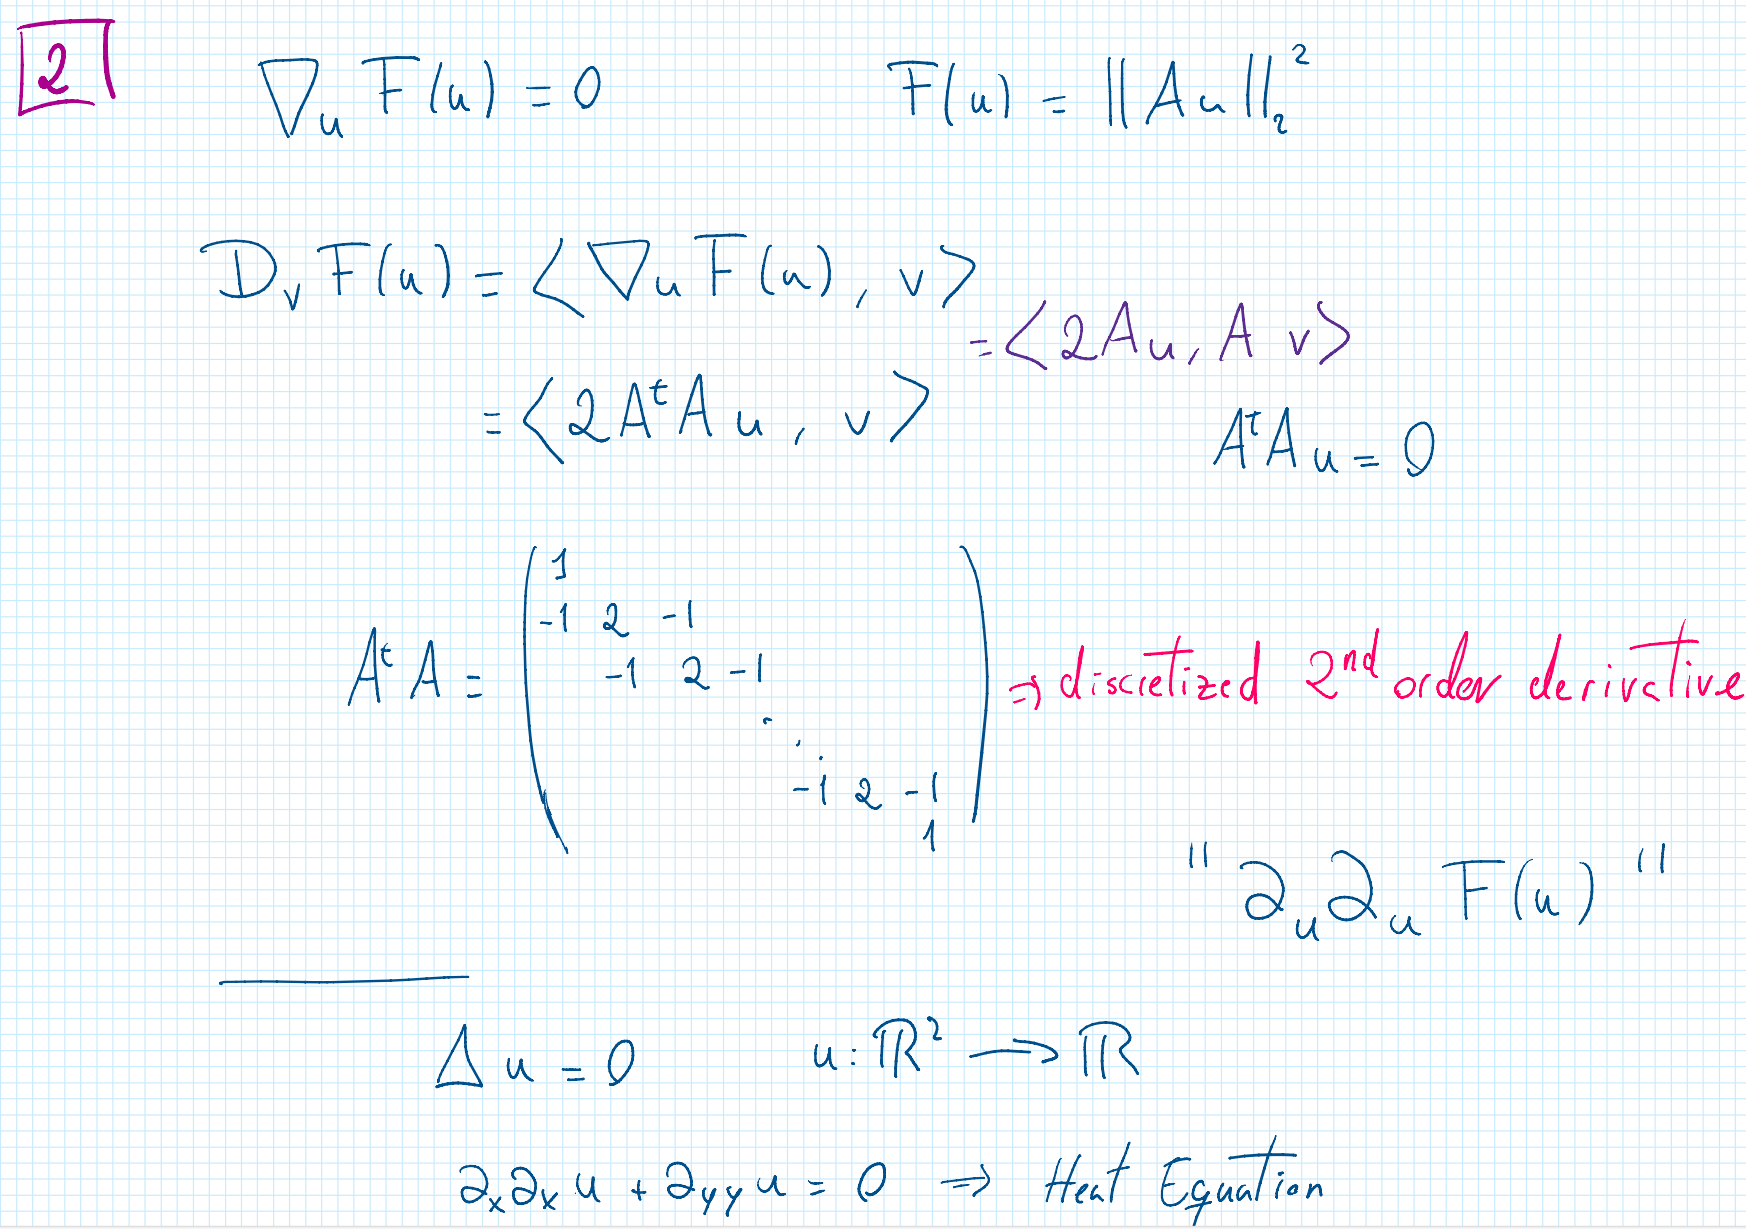 2
∇_u F(u) = 0    F(u) = ||Au||_2^2
D_v F(u) = <∇_u F(u), v>
= <2Au, A v>
= <2A^tA u, v>
A^tA u = 0
1
-1 2 -1
-1 2 -1
A^t A =
⇒ discretized 2nd order derivative
. . .
-1 2 -1
1
"∂_u ∂_u F(u)"
Δu = 0    u: ℝ^2 → ℝ
∂_x ∂_x u + ∂_yy u = 0 ⇒ Heat Equation